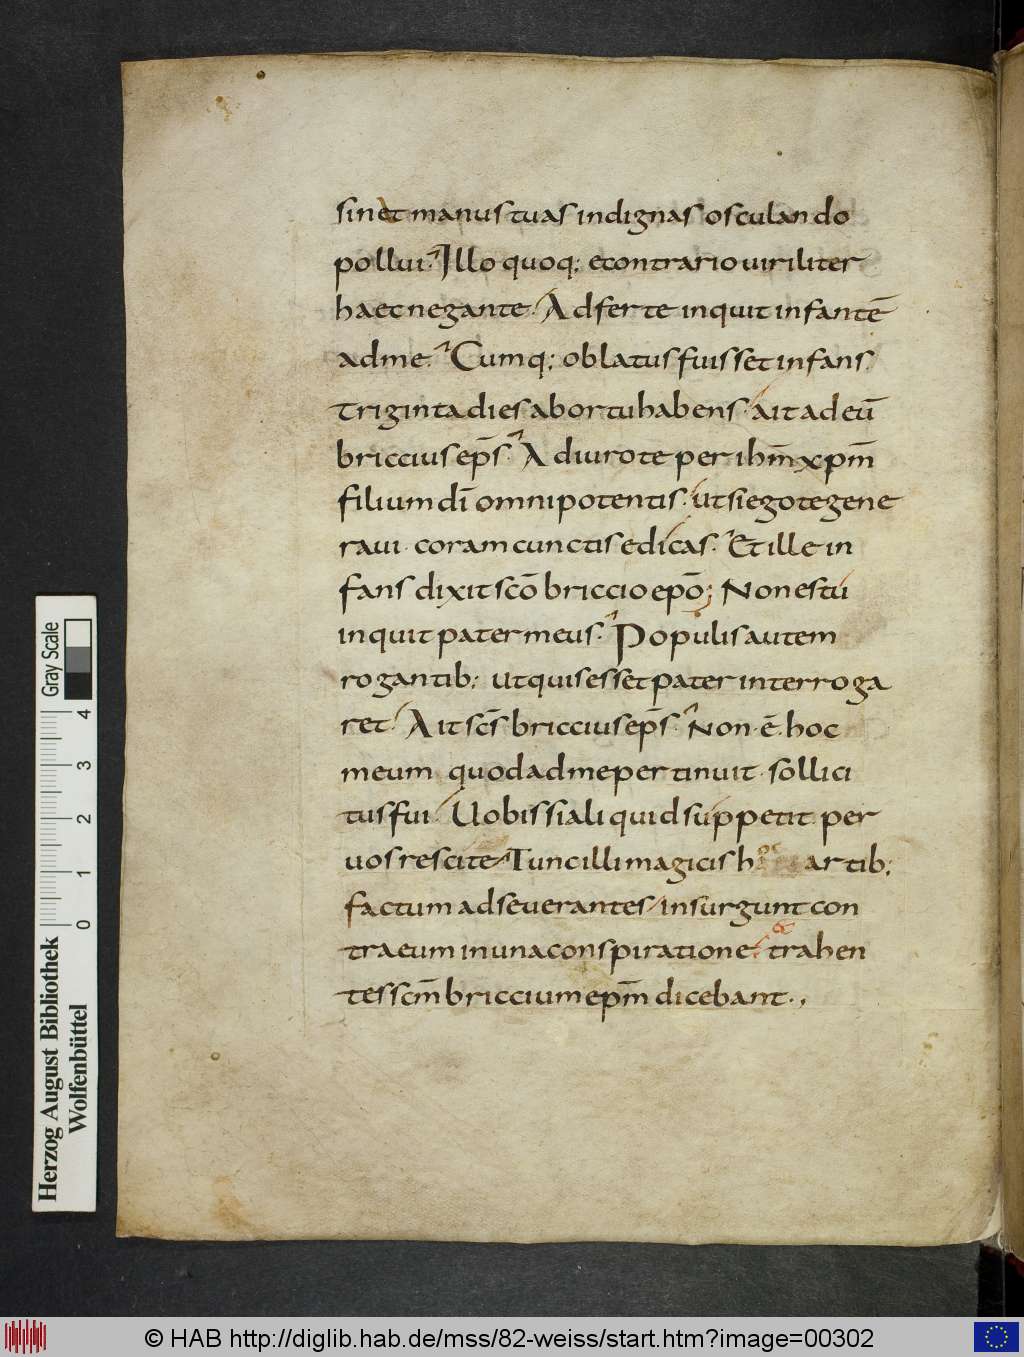 sinet manus tuas indignas osculando
pollui. Illo quoq; econtrario uiriliter
haec negante. Adferte inquit infantē
adme. Cumq; oblatus fuisset infans.
triginta dies abortu habens. ait adeū
briccius ep̄s. Adiuro te per ihm̄ xpm̄
filium dī omnipotentis. ut si ego te gene
raui. coram cunctis edicas. Et ille in
fans dixit scō briccio epō; Non es tu
inquit pater meus. Populis autem
rogantib; ut quis esset pater interroga
ret. Ait scs̄ briccius ep̄s. Non ē hoc
meum quod ad me pertinuit. sollici
tus fui. Uobis si aliquid suppetit per
uos rescite. Tunc illi magicis artib;
factum adseuerantes insurgunt con
tra eum in una conspiratione. &c trahen
tes scm̄ briccium epm̄ dicebant.,
Gray Scale
4 3 2 1 0
Herzog August Bibliothek
Wolfenbüttel
© HAB http://diglib.hab.de/mss/82-weiss/start.htm?image=00302